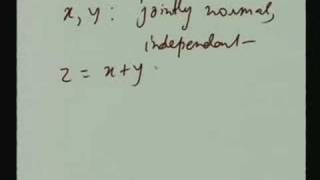 x, y : jointly normal,
independent
z = x + y